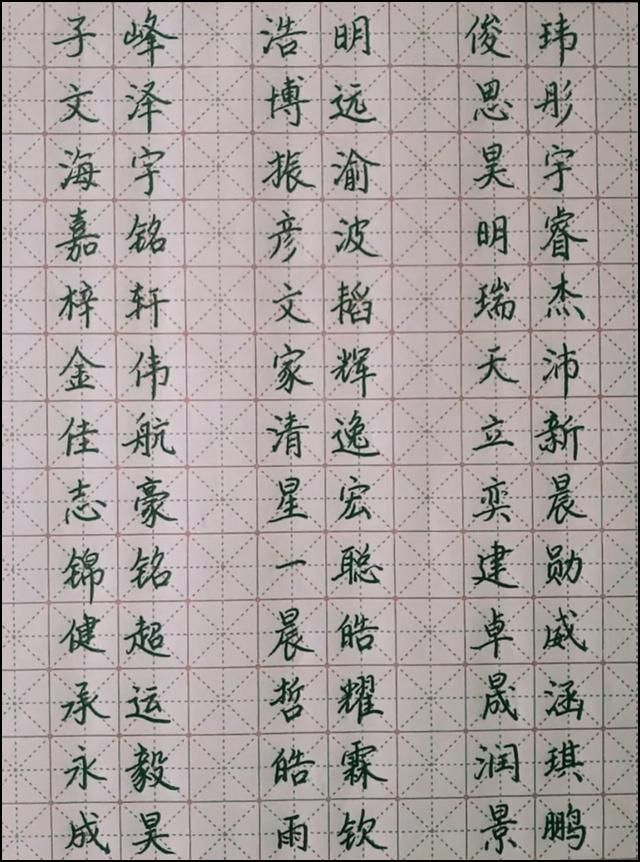 子峰 浩明 俊玮
文泽 博远 思彤
海宇 振渝 昊宇
嘉铭 彦波 明睿
梓轩 文韬 瑞杰
金伟 家辉 天沛
佳航 清逸 立新
志豪 星宏 奕晨
锦铭 一聪 建勋
健超 晨皓 卓威
承运 哲耀 晟涵
永毅 皓霖 润琪
成昊 雨钦 景鹏